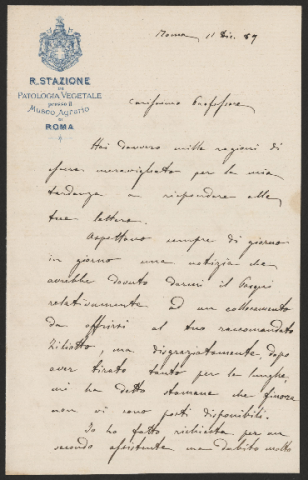 R. STAZIONE
DI
PATOLOGIA VEGETALE
presso il
Museo Agrario
DI
ROMA
Roma 11 Dic. 87
Carissimo Professore
Hai davvero mille ragioni di
essere meravigliato per la mia
tardanza a rispondere alla
tua lettera.
Aspettavo sempre di giorno
in giorno una notizia che
avrebbe dovuto darmi il
relativamente ad un collocamento
da offrirsi al tuo raccomandato
Ziliotto, ma disgraziatamente, dopo
aver tirato tanto per le lunghe,
mi ha detto stamane che finora
non vi sono posti disponibili.
Io ho fatto richiesta per un
secondo assistente ma dubito molto